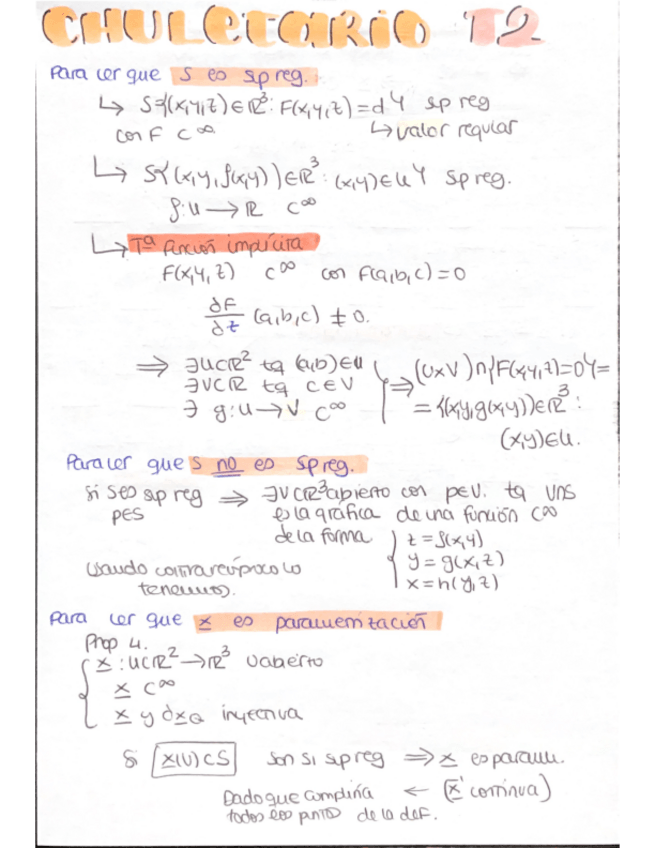 CHULETARIO T2
Para ver que S es sp reg.
↳ S={(x,y,z)∈ℝ³: F(x,y,z)=d} sp reg
con F C∞ ↳ valor regular
↳ S={(x,y,f(x,y))∈ℝ³: (x,y)∈U} sp reg.
f:U→ℝ C∞
↳ Tª función implícita
F(x,y,z) C∞ con F(a,b,c)=0
∂F/∂z (a,b,c) ≠ 0.
⇒ ∃U⊂ℝ² tq (a,b)∈U
∃V⊂ℝ tq c∈V
∃ g:U→V C∞
⇒ (U×V)∩{F(x,y,z)=0}=
={(x,y,g(x,y))∈ℝ³:
(x,y)∈U.
Para ver que S no es sp reg.
Si S es sp reg ⇒ ∃V⊂ℝ³ abierto con p∈V. tq V∩S
p∈S es la gráfica de una función C∞
de la forma { z=f(x,y)
y=g(x,z)
x=h(y,z)
Usando contrarecíproco lo
tenemos.
Para ver que x es parametrización
Prop 4.
x:U⊂ℝ²→ℝ³ U abierto
x C∞
x y dxq inyectiva
Si x(U)⊂S con S sp reg ⇒ x es param.
Dado que cumpliría ← (x⁻¹ continua)
todos los puntos de la def.